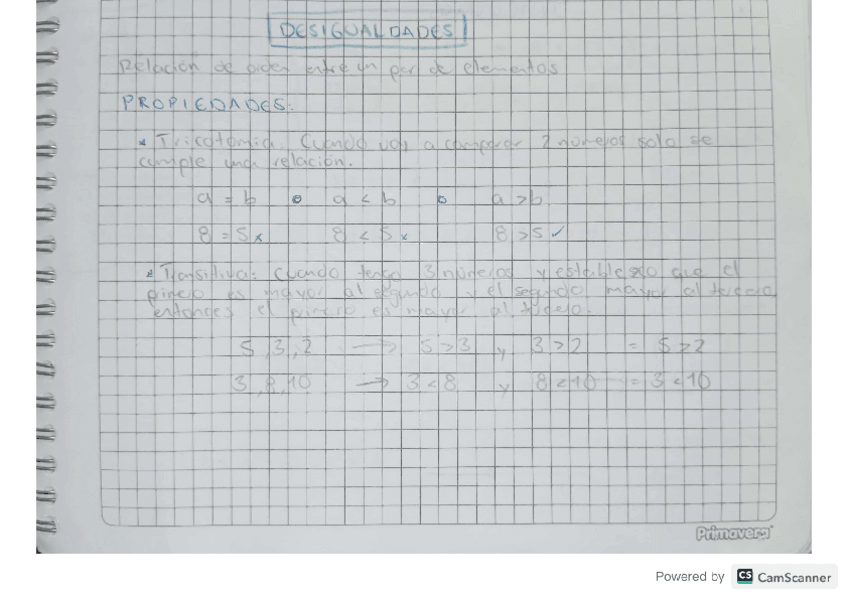 DESIGUALDADES
Relación de orden entre un par de elementos
PROPIEDADES:
* Tricotomia. Cuando voy a comparar 2 números solo se
cumple una relación.
a = b o a < b o a > b
8 = 5 x 8 < 5 x 8 > 5 ✓
* Transitiva: Cuando tengo 3 números y establezco que el
es mayor al segundo y el segundo mayor al tercero
entonces el es mayor al
5, 3, 2 → 5 > 3 y 3 > 2 = 5 > 2
3, 8, 10 → 3 < 8 y 8 < 10 = 3 < 10
Primavera
Powered by CS CamScanner